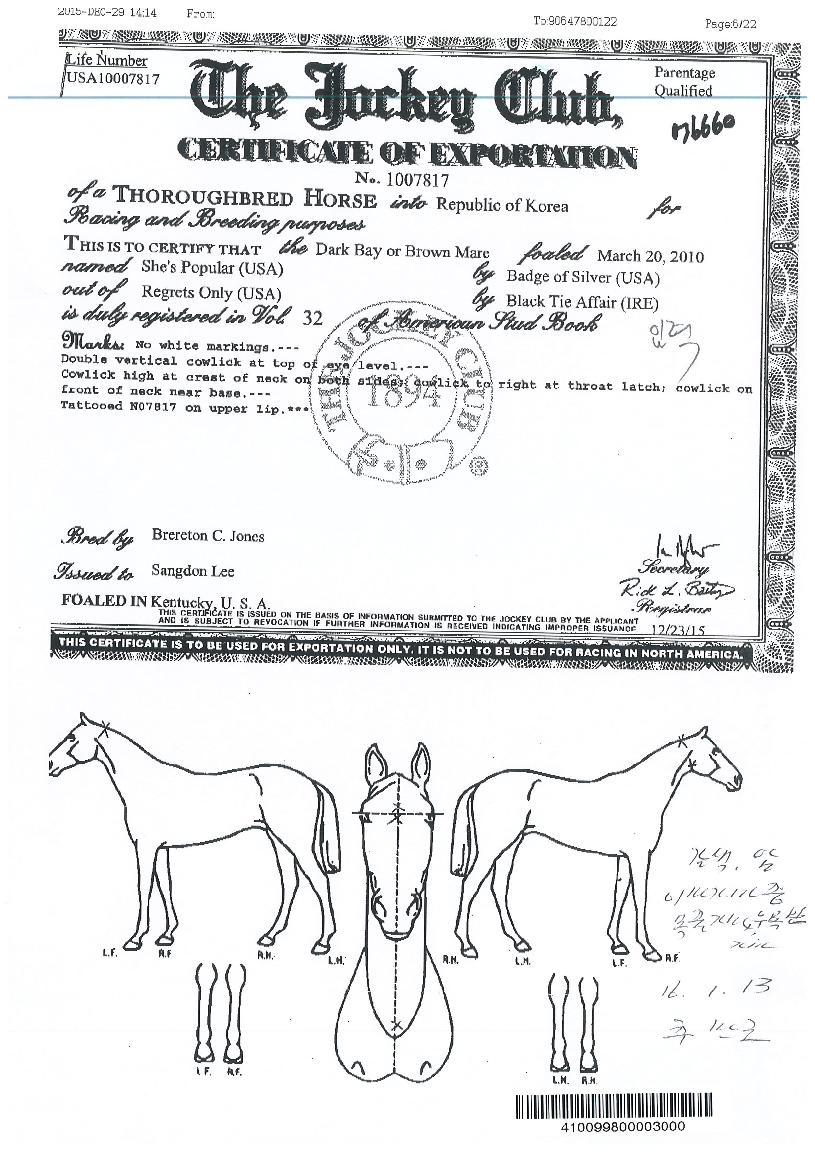 2015-DEC-29 14:14 From: To:90647800122 Page:6/22
Life Number
USA10007817
Parentage
Qualified
The Jockey Club,
CERTIFICATE OF EXPORTATION
No. 1007817
of a THOROUGHBRED HORSE into Republic of Korea for
Racing and Breeding purposes
THIS IS TO CERTIFY THAT the Dark Bay or Brown Mare foaled March 20, 2010
named She's Popular (USA) by Badge of Silver (USA)
out of Regrets Only (USA) by Black Tie Affair (IRE)
is duly registered in Vol. 32 of American Stud Book
Marks: No white markings.---
Double vertical cowlick at top of eye level.---
Cowlick high at crest of neck on both sides; cowlick to right at throat latch; cowlick on
front of neck near base.---
Tattooed N07817 on upper lip.***
THE JOCKEY CLUB
1894
®
Bred by Brereton C. Jones
Issued to Sangdon Lee
Secretary
Registrar
FOALED IN Kentucky, U. S. A.
THIS CERTIFICATE IS ISSUED ON THE BASIS OF INFORMATION SUBMITTED TO THE JOCKEY CLUB BY THE APPLICANT
AND IS SUBJECT TO REVOCATION IF FURTHER INFORMATION IS RECEIVED INDICATING IMPROPER ISSUANCE 12/23/15
THIS CERTIFICATE IS TO BE USED FOR EXPORTATION ONLY, IT IS NOT TO BE USED FOR RACING IN NORTH AMERICA.
L.F. R.F. R.H. L.H. R.H. L.H. L.F. R.F.
16. 1. 13
L.F. R.F. L.H. R.H.
410099800003000